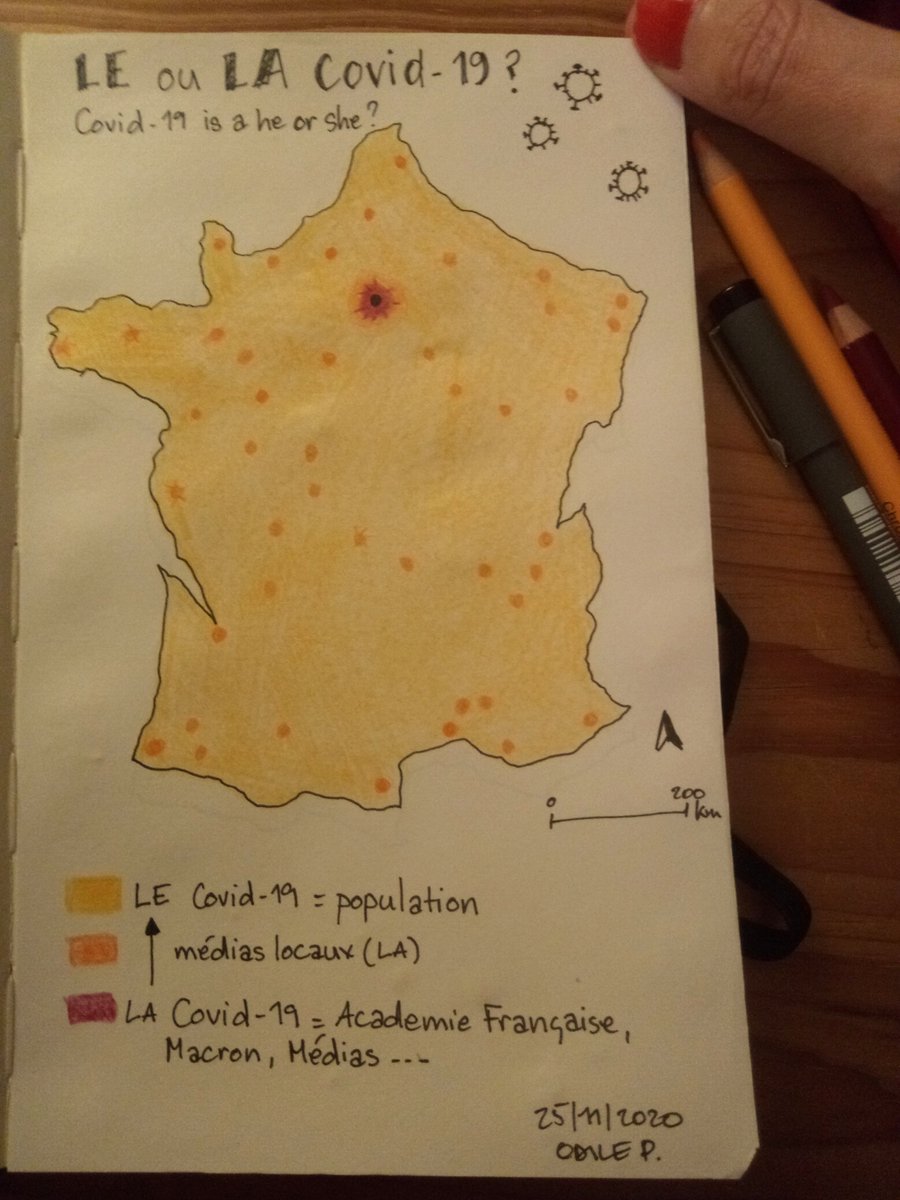 LE ou LA Covid-19?
Covid-19 is a he or she?
0 200 km
LE Covid-19 = population
médias locaux (LA)
LA Covid-19 = Academie Française,
Macron, Médias ---
25/11/2020
ODILE P.